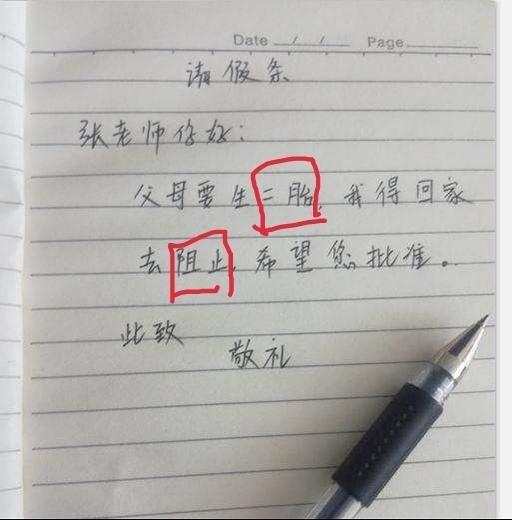 Date / / Page
请假条
张老师你好：
父母要生二胎，我得回家
去阻止，希望您批准。
此致
敬礼